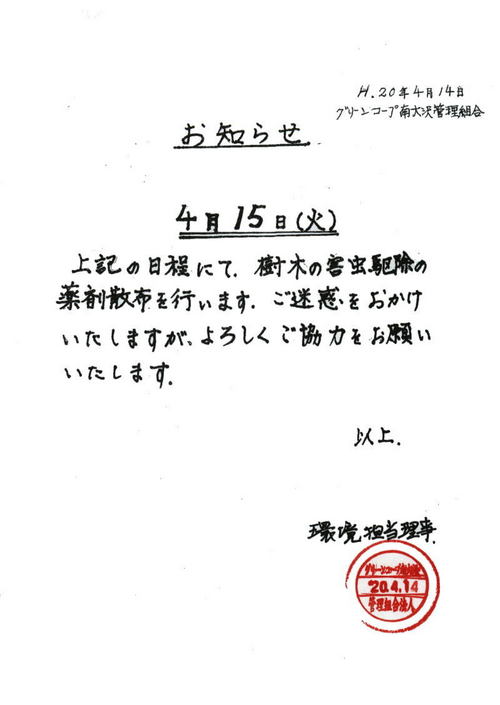 H.20年4月14日
グリーンコープ南大沢管理組合
お知らせ
4月15日(火)
上記の日程にて、樹木の害虫駆除の
薬剤散布を行います。ご迷惑をおかけ
いたしますが、よろしくご協力をお願い
いたします。
以上.
環境担当理事
グリーンコープ南大沢
20.4.14
管理組合法人